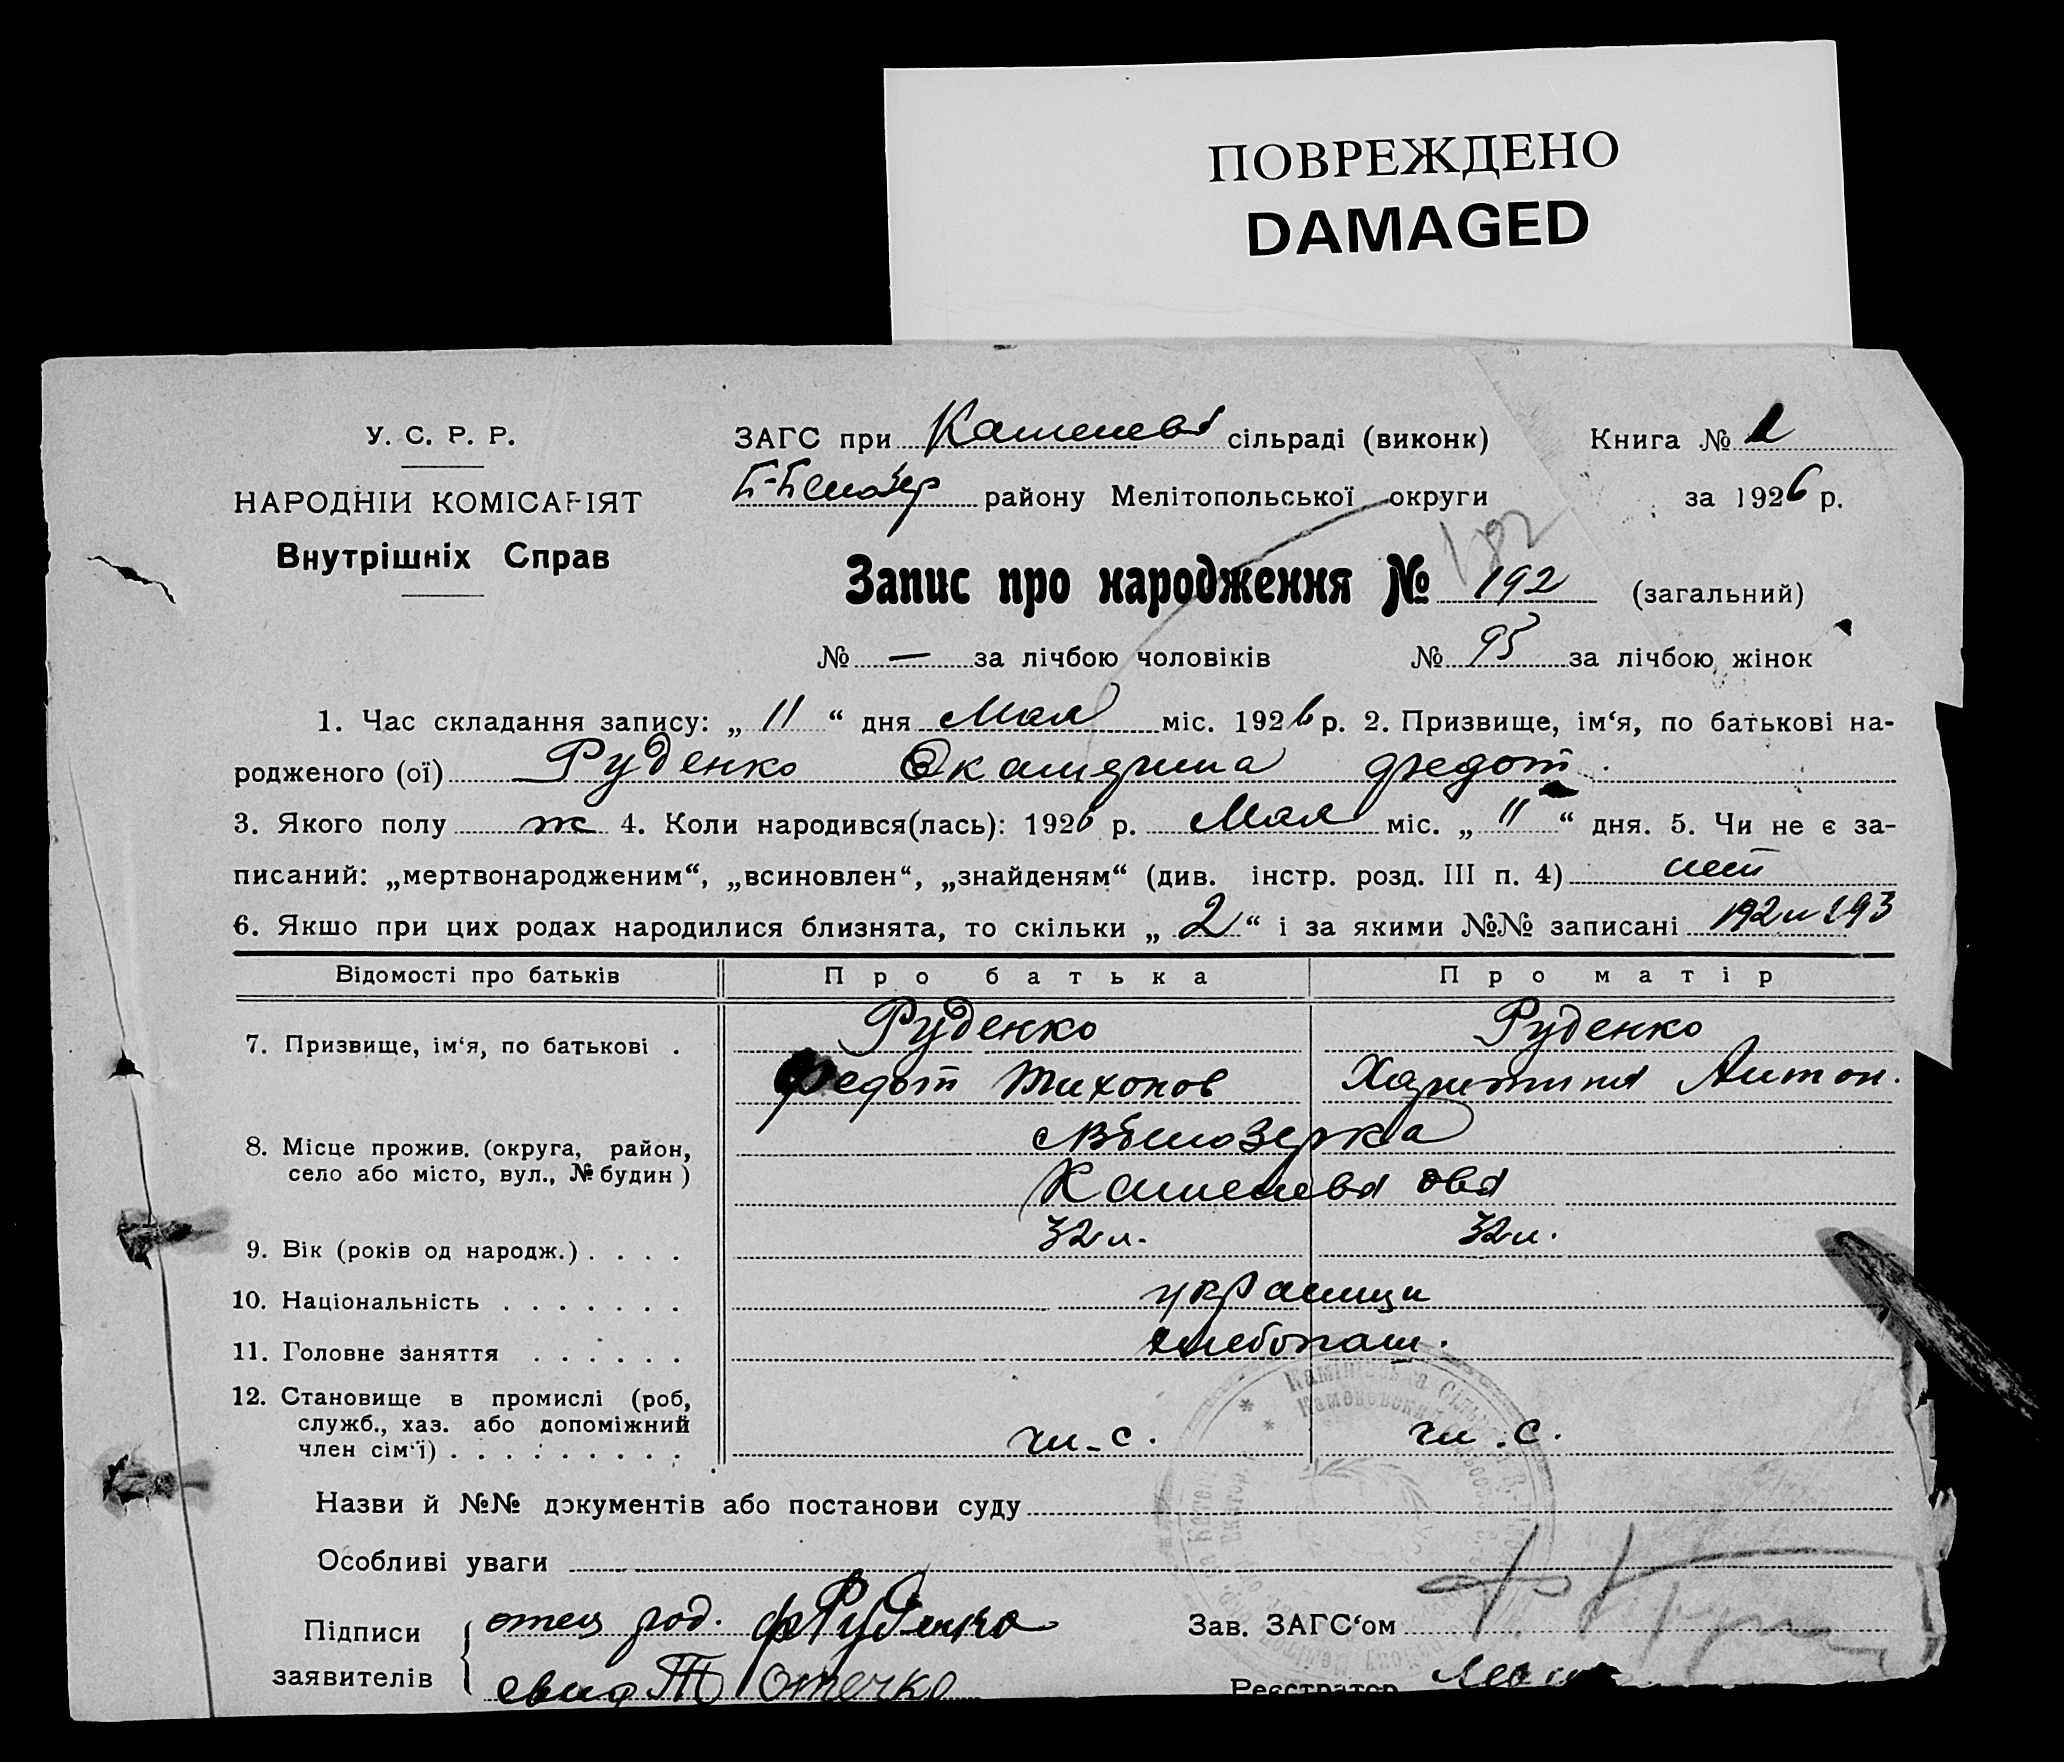 ПОВРЕЖДЕНО
DAMAGED
У. С. Р. Р.
НАРОДНІЙ КОМІСАРІЯТ
Внутрішніх Справ
ЗАГС при Каменевс сільраді (виконк)
Книга № 2
Б-Белозер району Мелітопольської округи
за 1926 р.
182
Запис про народження № 192 (загальний)
№ — за лічбою чоловіків № 95 за лічбою жінок
1. Час складання запису: „ 11 “ дня Мая міс. 1926 р. 2. Призвище, ім‘я, по батькові на-
родженого (ої) Руденко Екатерина Федот.
3. Якого полу ж 4. Коли народився(лась): 1926 р. Мая міс. „ 11 “ дня. 5. Чи не є за-
писаний: „мертвонародженим“, „всиновлен“, „знайденям“ (див. інстр. розд. III п. 4) нет
6. Якшо при цих родах народилися близнята, то скільки „ 2 “ і за якими №№ записані 192 и 193
Відомості про батьків Про батька Про матір
7. Призвище, ім‘я, по батькові . Руденко Руденко
Федот Тихонов Харитина Антон.
8. Місце прожив. (округа, район,
село або місто, вул., № будин ) Белозерка
9. Вік (років од народж.) . . . . 32 л. 32 л.
10. Національність . . . . . . . украинци
11. Головне заняття . . . . . . хлебопаш.
12. Становище в промислі (роб,
служб., хаз. або допоміжний
член сім‘ї) . . . . . . . . . чл. с. чл. с.
Назви й №№ документів або постанови суду
Особливі уваги
Підписи
заявителів
отец род. Ф Руденко
свид Т Отечко
Зав. ЗАГС‘ом
Реєстратор